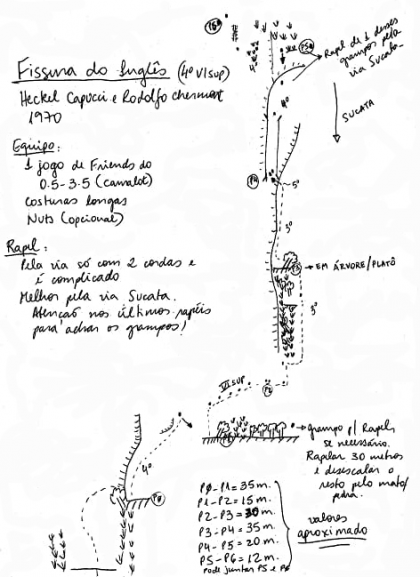 Fissura do Inglês (4º VISUP)
Heckel Capucci e Rodolfo Chermont
1970
Equipo:
1 jogo de Friends do
0.5-3.5 (camalot)
costuras longas
Nuts (opcional)
Rapel:
Pela via só com 2 cordas e
é complicado
Melhor pela via Sucata.
Atenção nos últimos rapéis
para achar os grampos!
Rapel de 1 desses
grampos pela
via Sucata
SUCATA
P4
5º
5º
EM ÁRVORE/PLATÔ
5º
VISUP
P2
grampo p/ Rapel
se necessário.
Rapelar 30 metros
e desescalar o
resto pelo mato/
pedra.
4º
PØ
PØ-P1=35m.
P1-P2=15m.
P2-P3=30m.
P3-P4=35m.
P4-P5=20m.
P5-P6=12m.
Pode juntar P5 e P6
valores
aproximado